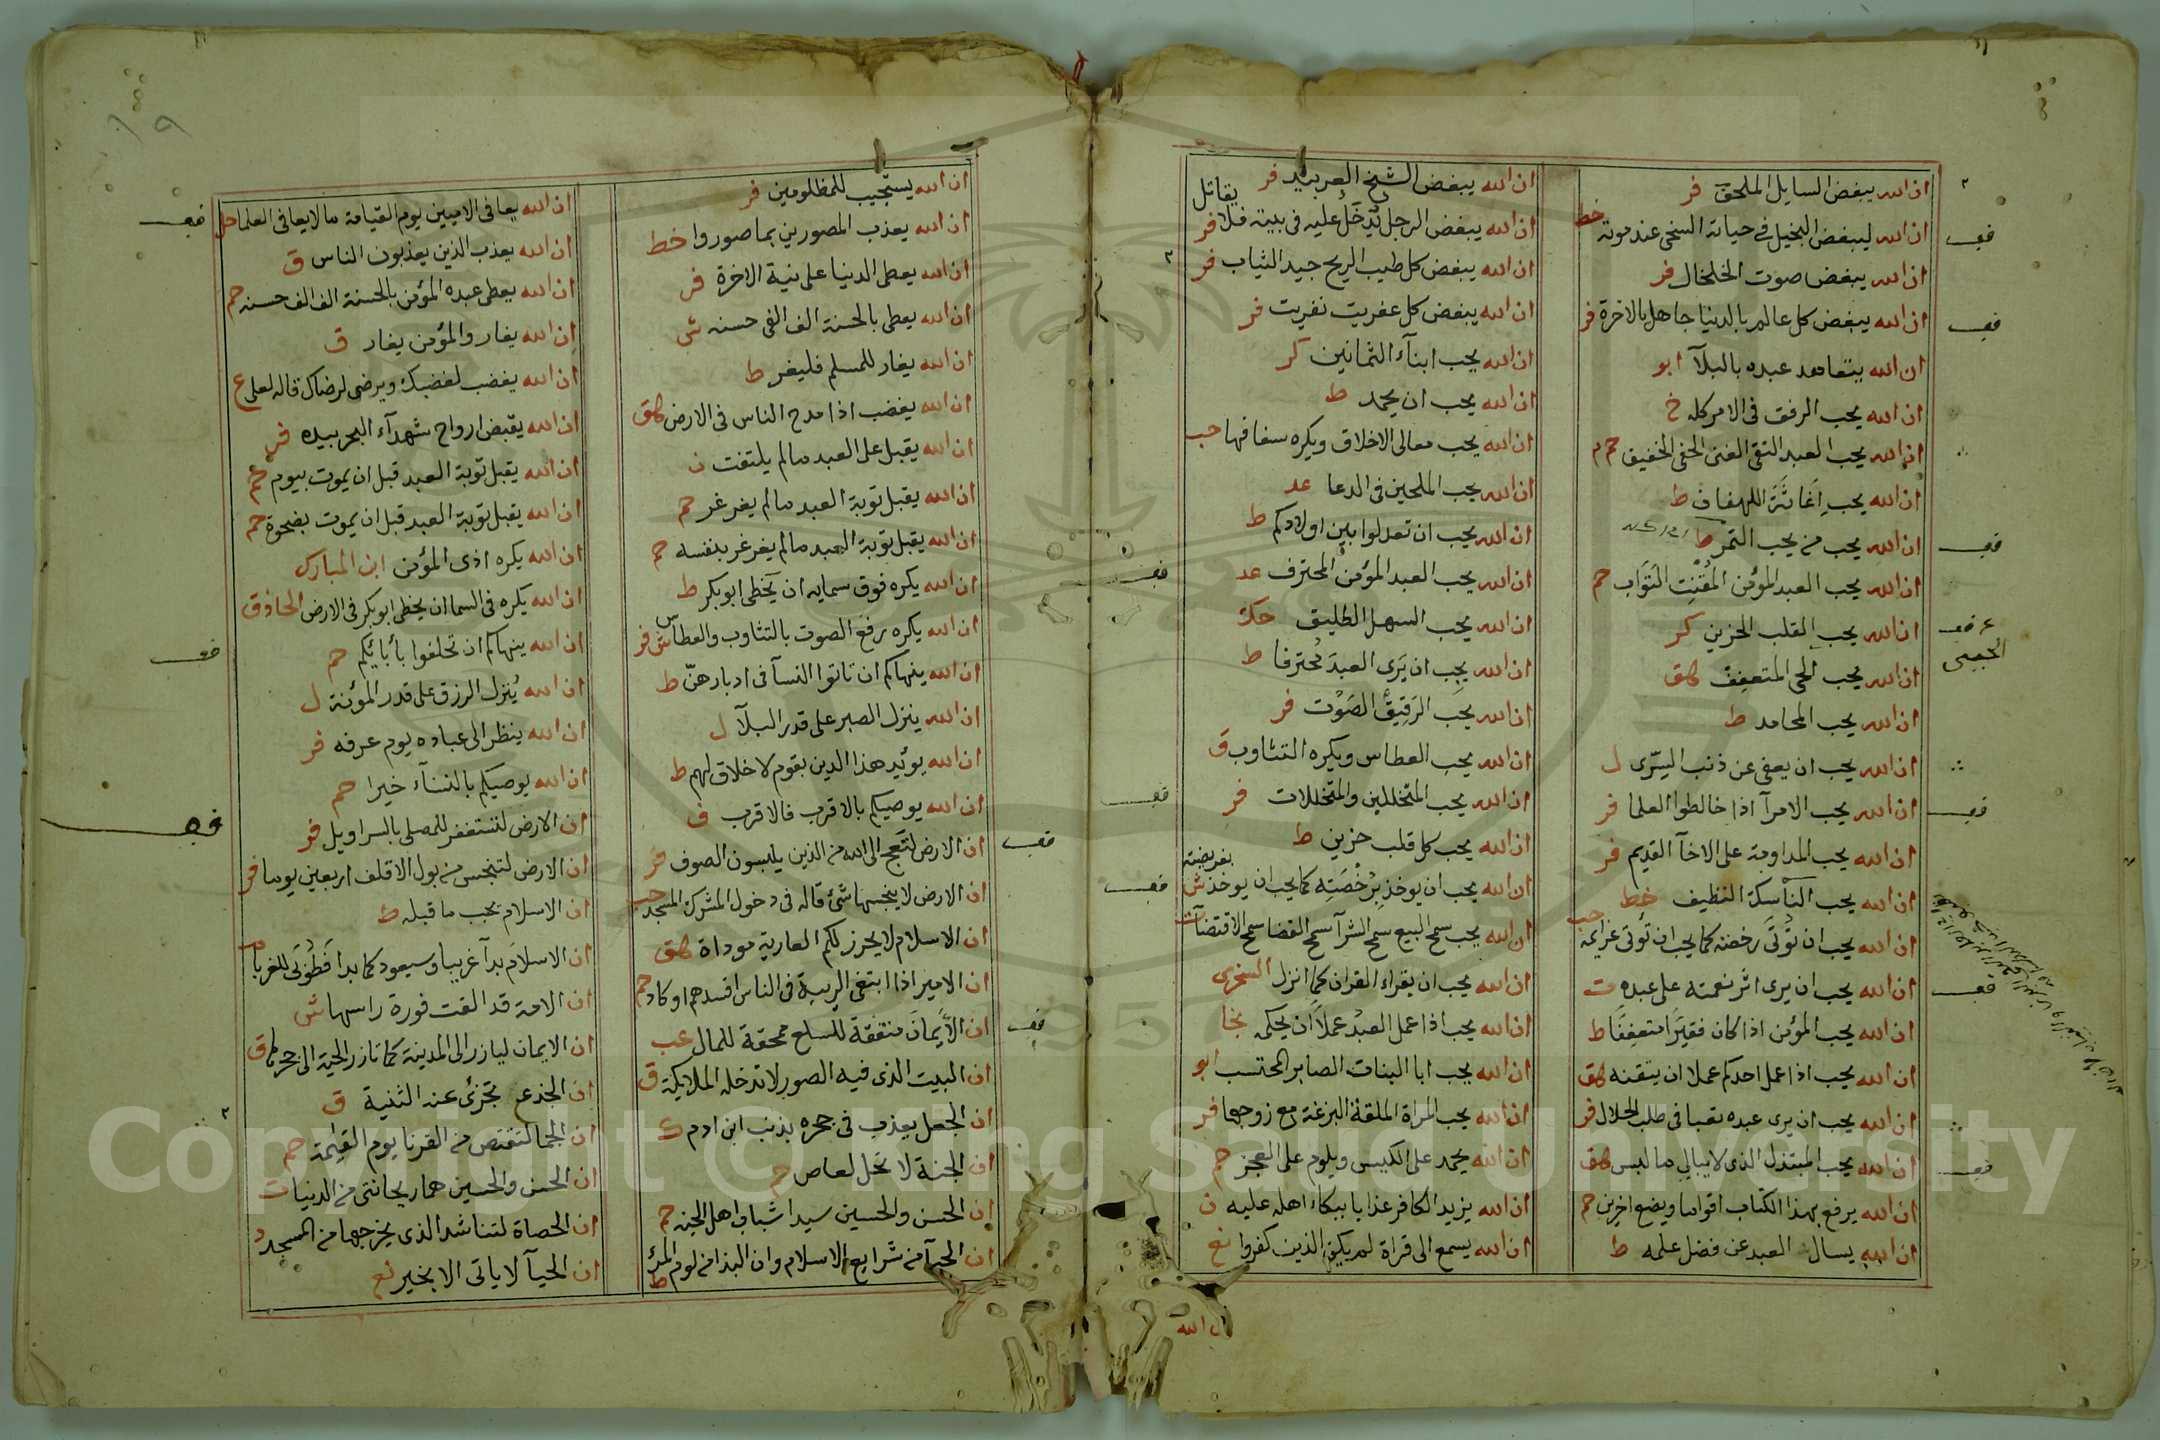 ان الله يبغض السايل الملحف فر
ان الله ليبغض البخيل في حياته السخي عند موته خط
ان الله يبغض صوت الخلخال فر
ان الله يبغض كل عالم بالدنيا جاهل بالاخرة فر
ان الله يتعاهد عبده بالبلآ ابو
ان الله يحب الرفق في الامر كله خ
ان الله يحب العبد التقي الغني الخفي حم م
ان الله يحب اغاثة اللهفان ط
ان الله يحب من يحب التمر ط
ان الله يحب العبد المؤمن المفتن التواب حم
ان الله يحب القلب الحزين كر
ان الله يحب الحيي المتعفف هق
ان الله يحب المحامد ط
ان الله يحب ان يعفى عن ذنب السري ل
ان الله يحب الامرآ اذا خالطوا العلما فر
ان الله يحب المداومة على الاخآ القديم فر
ان الله يحب الناسك النظيف خط
ان الله يحب ان تؤتى رخصه كما يحب ان تؤتى عزايمه حب
ان الله يحب ان يرى اثر نعمته على عبده ت
ان الله يحب المؤمن اذا كان فقيرا متعففا ط
ان الله يحب اذا عمل احدكم عملا ان يتقنه هق
ان الله يحب ان يرى عبده تعبا في طلب الحلال فر
ان الله يحب المبتذل الذي لا يبالي ما لبس هق
ان الله يرفع بهذا الكتاب اقواما ويضع اخرين حم
ان الله يسال العبد عن فضل علمه ط
ان الله يبغض الشيخ الغربيب فر
ان الله يبغض الرجل يدخل عليه في بيته فلا يقاتل فر
ان الله يبغض كل طيب الريح جيد الثياب فر
ان الله يبغض كل عفريت نفريت فر
ان الله يحب ابنآء الثمانين كر
ان الله يحب ان يحمد ط
ان الله يحب معالي الاخلاق ويكره سفافها حب
ان الله يحب الملحين في الدعا عد
ان الله يحب ان تعدلوا بين اولادكم ط
ان الله يحب العبد المؤمن المحترف عد
ان الله يحب السهل الطليق حك
ان الله يحب ان يرى العبد محترفا ط
ان الله يحب الرقيق الصوت فر
ان الله يحب العطاس ويكره التثاوب ق
ان الله يحب المتخللين والمتخللات فر
ان الله يحب كل قلب حزين ط
ان الله يحب ان يوخذ برخصته كما يحب ان يوخذ بفريضته ش
ان الله يحب سمح البيع سمح الشرآ سمح القضا سمح الاقتضآ ت
ان الله يحب ان يقراء القران كما انزل السجزي
ان الله يحب اذا عمل العبد عملا ان يحكمه نجا
ان الله يحب ابا البنات الصابر المحتسب ابو
ان الله يحب المراة الملقة البزعة مع زوجها فر
ان الله يحمد على الكيس ويلوم على العجز حم
ان الله يزيد الكافر عذابا ببكاء اهله عليه ن
ان الله يسمع الى قراة لم يكن الذين كفروا نع
ان الله
ان الله يستجيب للمظلومين فر
ان الله يعذب المصورين بما صوروا خط
ان الله يعطي الدنيا على نية الاخرة فر
ان الله يعطي بالحسنة الف الفي حسنه ش
ان الله يغار للمسلم فليغر ط
ان الله يغضب اذا مدح الناس في الارض هق
ان الله يقبل على العبد ما لم يلتفت ن
ان الله يقبل توبة العبد ما لم يغرغر حم
ان الله يقبل توبة العبد ما لم يغرغر بنفسه حم
ان الله يكره فوق سمايه ان يخطى ابو بكر ط
ان الله يكره رفع الصوت بالتثاوب والعطاس فر
ان الله ينهاكم ان تاتوا النسآ في ادبارهن ط
ان الله ينزل الصبر على قدر البلآ ل
ان الله يوئيد هذا الدين بقوم لا خلاق لهم ط
ان الله يوصيكم بالاقرب فالاقرب ق
ان الارض لتعج الى الله من الذين يلبسون الصوف فر
ان الارض لا ينجسها شئ قاله في دخول المشرك المسجد
ان الاسلام لا يحرز لكم العارية موداة هق
ان الامير اذا ابتغى الريبة في الناس افسدهم او كاد حم
ان الايمان منفقة للسلع ممحقة للمال عب
ان البيت الذي فيه الصور لا تدخله الملايكة ق
ان الجعل يعذب في جحره بذنب ابن ادم ك
ان الجنة لا تحل لعاص حم
ان الحسن والحسين سيدا شباب اهل الجنه حم
ان الحيآ من شرايع الاسلام وان البذا من لوم المرء ط
ان الله يعافي الاميين يوم القيامة ما لا يعافي العلما حل
ان الله يعذب الذين يعذبون الناس ق
ان الله يعطي عبده المؤمن بالحسنة الف الف حسنه حم
ان الله يغار والمؤمن يغار ق
ان الله يغضب لغضبك ويرضى لرضاك قاله لعلي ع
ان الله يقبض ارواح شهدآء البحر بيده فر
ان الله يقبل توبة العبد قبل ان يموت بيوم حم
ان الله يقبل توبة العبد قبل ان يموت بضحوة حم
ان الله يكره اذى المؤمن ابن المبارك
ان الله يكره في السما ان يخطى ابو بكر في الارض الحاذق
ان الله ينهاكم ان تحلفوا بأبائكم حم
ان الله ينزل الرزق على قدر المؤنة ل
ان الله ينظر الى عباده يوم عرفه فر
ان الله يوصيكم بالنسآء خيرا حم
ان الارض لتستغفر للمصلي بالسراويل فر
ان الارض لتنجس من بول الاقلف اربعين يوما فر
ان الاسلام يجب ما قبله ط
ان الاسلام بدآ غريبا وسيعود كما بدا فطوبى للغربا م
ان الامة قد القت فروة راسها ش
ان الايمان ليازر الى المدينة كما تازر الحية الى جحرها ق
ان الجذع تجزئ عنه الثنية ق
ان الجما لتقتص من القرنا يوم القيمة حم
ان الحسن والحسين هما ريحانتي من الدنيا ت
ان الحصاة لتناشد الذي يخرجها من المسجد د
ان الحيآ لا ياتي الا بخير نع
Copyright © King Saud University